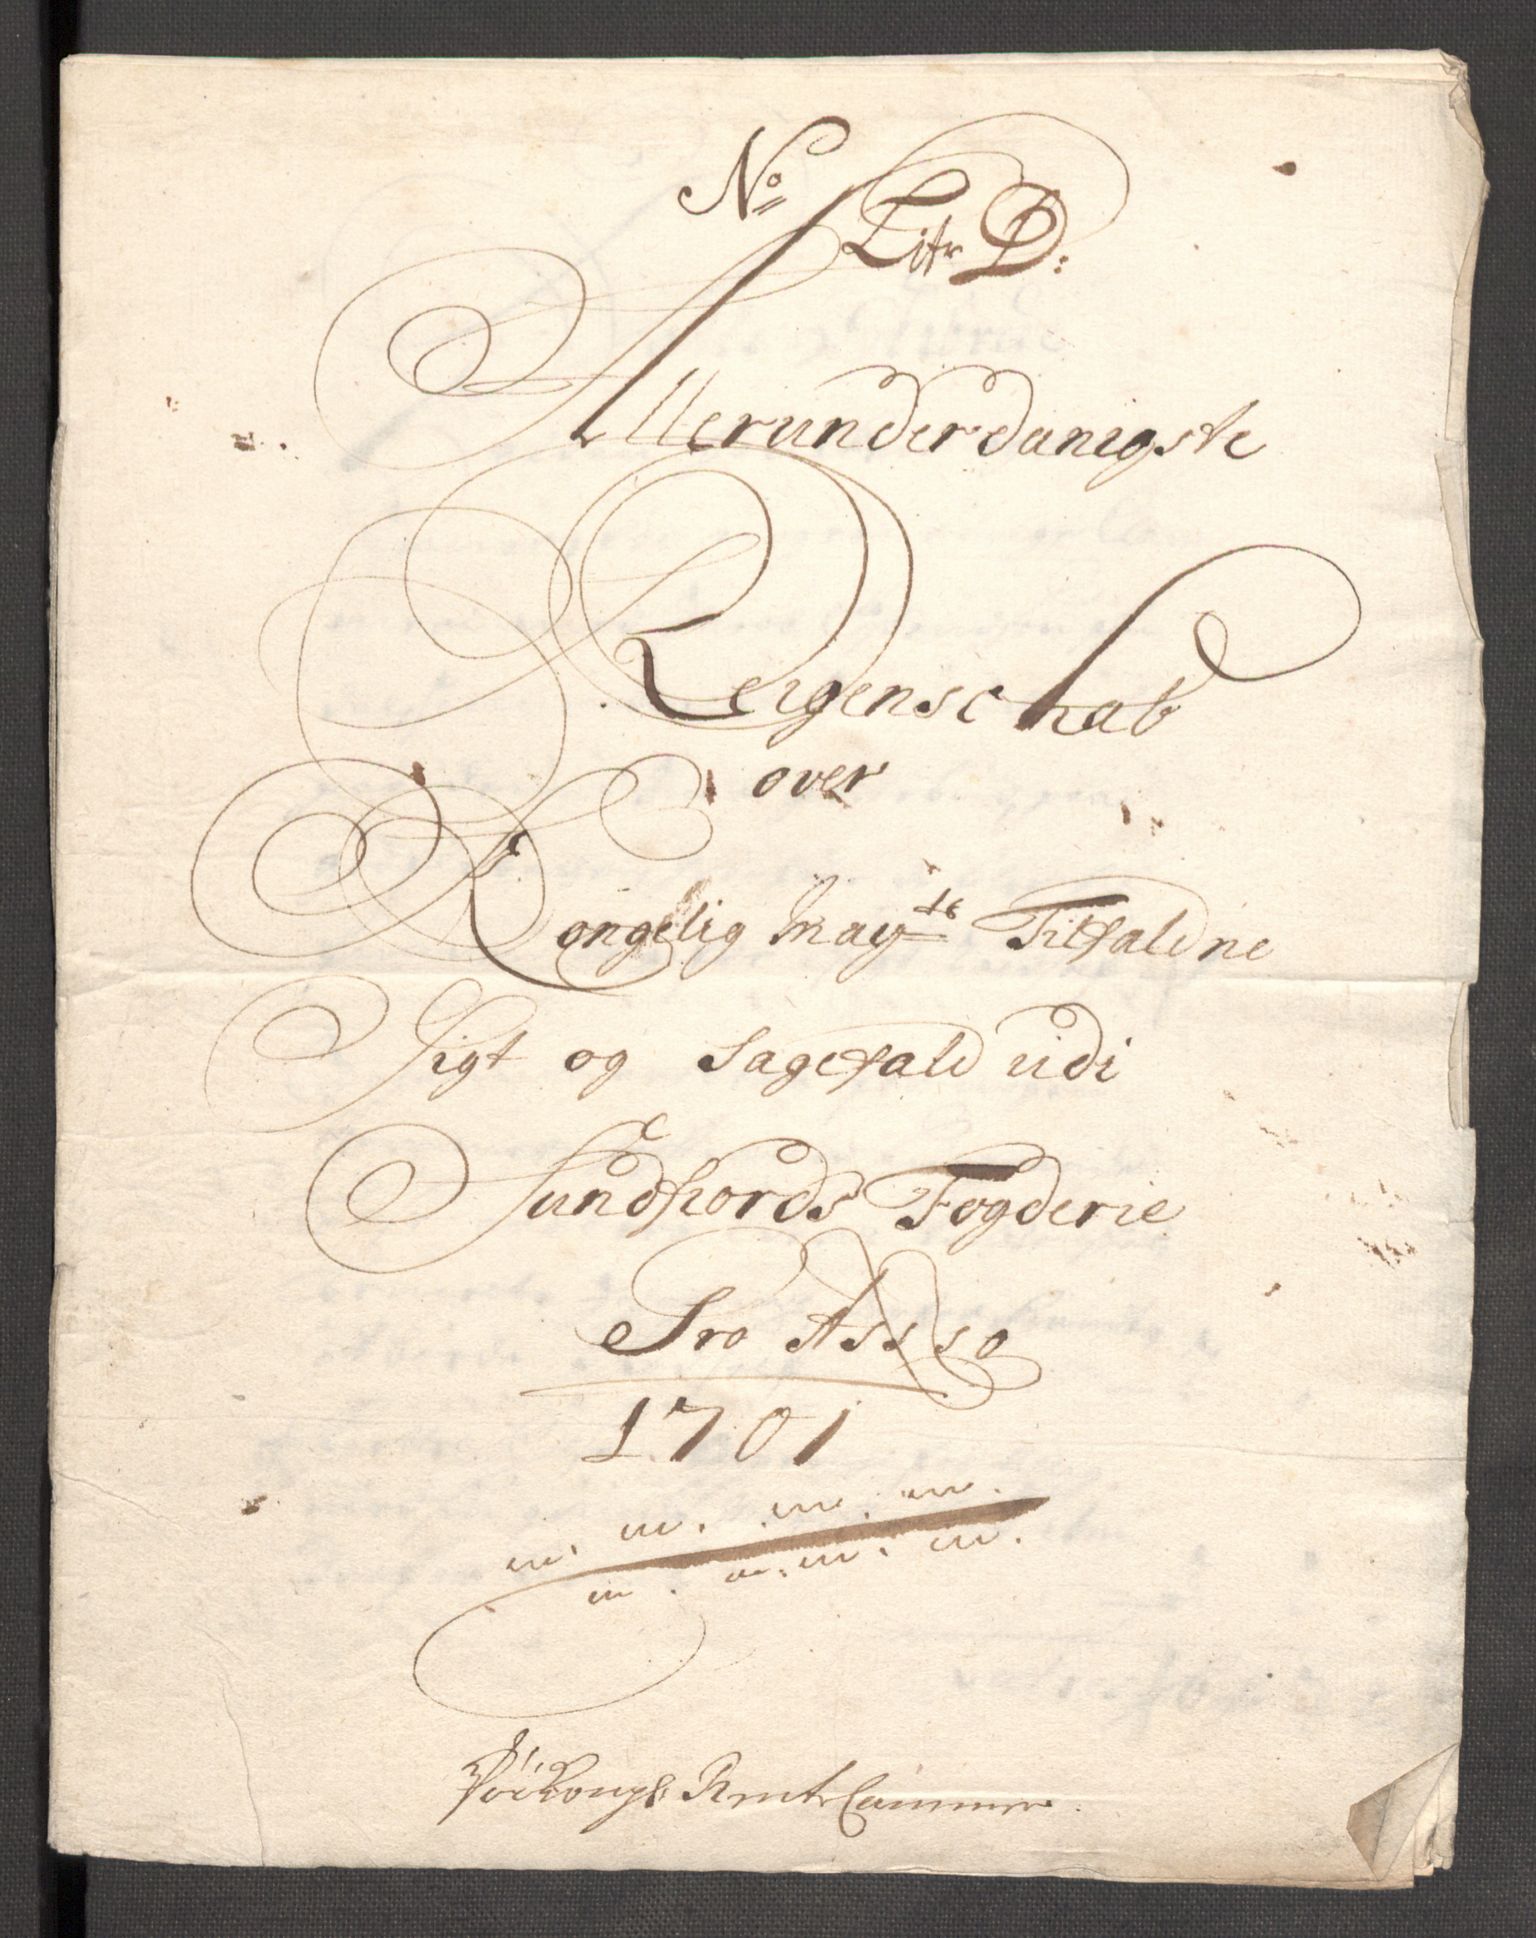 No Litr D:
Allerunderdanigste
Reigenschab
over
Kongelig Mayts Tilfaldne
Sigt og Sagefald udi
Sundfiords Fogderie
Pro Ao
1701
Rente Cammer